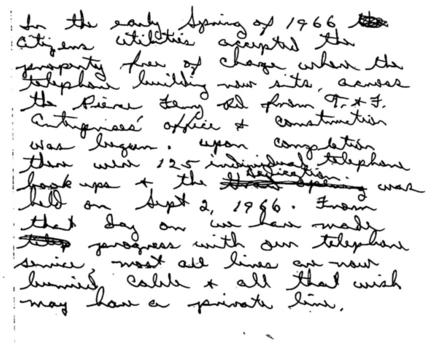 In the early Spring of 1966
Citizens Utilities accepted the
property free of charge where the
telephone building now sits, across
the Pierce Ferry Rd from T. & F.
Enterprises' office & construction
was begun. Upon completion
there were 125 individual telephone
hook ups & the Dedication was
held on Sept 2, 1966. From
that day on we have made
progress with our telephone
service. most all lines are now
burried cable & all that wish
may have a private line.